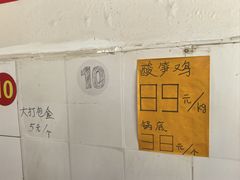 10
10
大打包盒
5元/个
酸笋鸡
89元/kg
锅底
38元/个